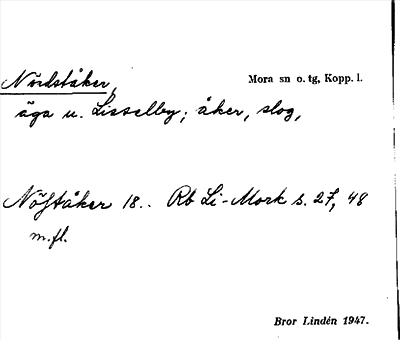 Nördståker, Mora sn o. tg, Kopp. l.
äga u. Lisselby; åker, slog,
Nöjståker 18.. Rb Li-Mork s. 27, 48
m.fl.
Bror Lindén 1947.